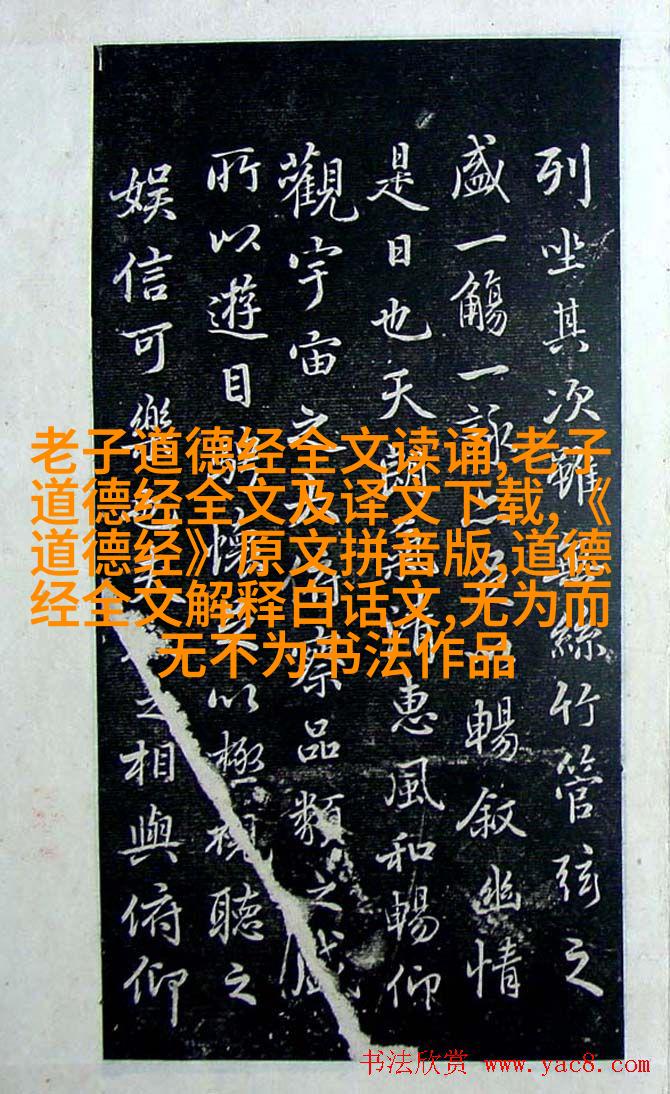 列坐其次雖無絲竹管弦之
盛一觴一詠暢叙幽情
是日也天朗氣清惠風和暢仰
觀宇宙之大俯察品類之盛
所以遊目騁懷以極視聽之
娛信可樂也夫之相與俯仰
老子道德经全文读诵,老子
道德经全文及译文下载,《
道德经》原文拼音版,道德
经全文解释白话文,无为而
无不为书法作品
书法欣赏 www.yac8.com